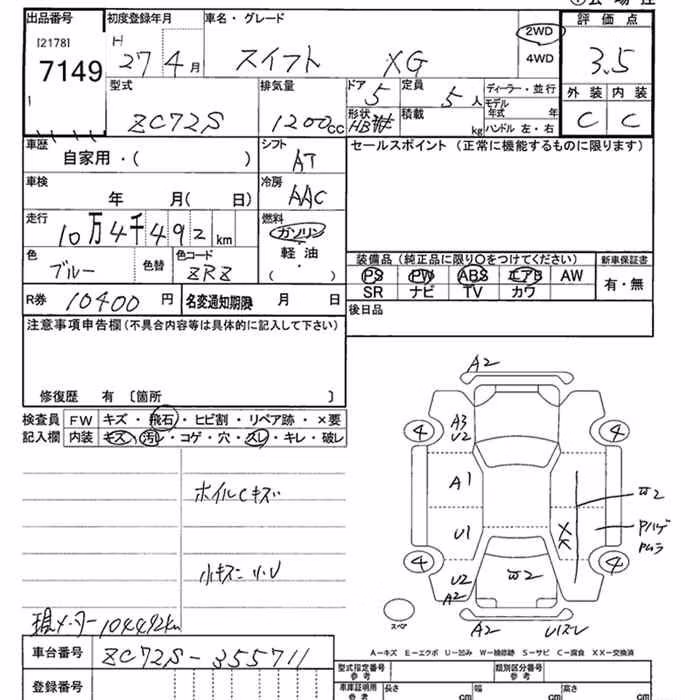 出品番号 初度登録年月 車名・グレード 評価点
[2178] H 2WD
7149 27年4月 スイフト XG 4WD 3.5
型式 排気量 ドア 定員 ディーラー・並行 外装 内装
ZC72S 1200cc 5 5人 モデル年式 年 C C
形状 HB 積載 kg ハンドル 左・右
車歴 自家用・( ) シフト AT セールスポイント (正常に機能するものに限ります)
車検 年 月( 日) 冷房 AAC
走行 10万4千492km 燃料 ガソリン
色 ブルー 色替 色コード ZRZ 軽油
・
( )
装備品 (純正品に限り○をつけてください) 新車保証書
PS PW ABS エアB AW 有・無
SR ナビ TV カワ
R券 10400円 名変通知期限 月 日 後日品
注意事項申告欄(不具合内容等は具体的に記入して下さい)
修復歴 有 〔箇所 〕
検査員 FW キズ・飛石・ヒビ割・リペア跡・×要
記入欄 内装 キズ・汚レ・コゲ・穴・スレ・キレ・破レ
ホイルCキズ
小キズ小U
現メーター104492km
A2
A3
U2
4 4
A1
W2
U1 X
Pハゲ
Pムラ
4 4
U2 W2
A2
スペア A2 U1ズレ
A－キズ E－エクボ U－凹み W－補修跡 S－サビ C－腐食 XX－交換済
車台番号 ZC72S-355711
登録番号
型式指定番号 参考 類別区分番号 参考
車庫証明用 参考 長さ cm 幅 cm 高さ cm